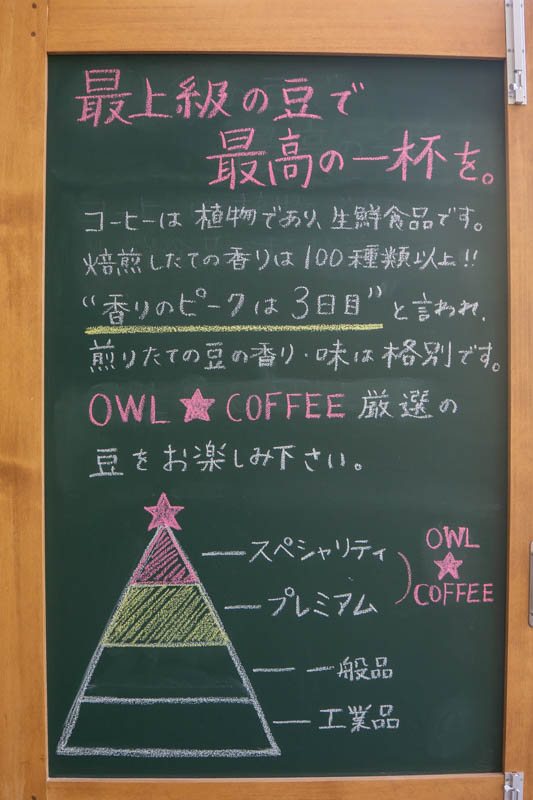 最上級の豆で
最高の一杯を。
コーヒーは植物であり、生鮮食品です。
焙煎したての香りは100種類以上!!
“香りのピークは3日目”と言われ、
煎りたての豆の香り・味は格別です。
OWL★COFFEE 厳選の
豆をお楽しみ下さい。
スペシャリティ
プレミアム
OWL
★
COFFEE
一般品
工業品